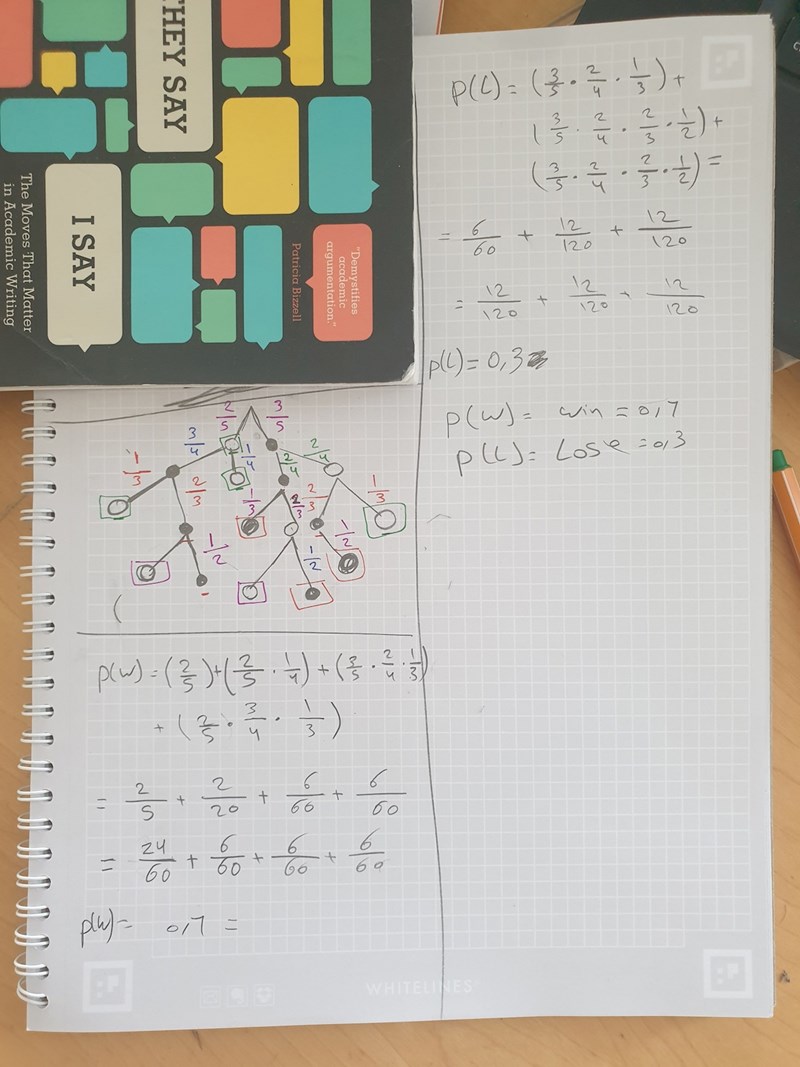 THEY SAY
I SAY
The Moves That Matter
in Academic Writing
"Demystifies
academic
argumentation."
Patricia Bizzell
2/5 3/5
3/4 1/4 2/4 2/4
1/3 2/3 1/3 2/3 2/3 1/3
1/2 1/2 1/2
(
p(w) = (2/5) + (2/5 · 1/4) + (3/5 · 2/4 · 1/3)
+ (2/5 · 3/4 · 1/3)
= 2/5 + 2/20 + 6/60 + 6/60
= 24/60 + 6/60 + 6/60 + 6/60
p(w) = 0,7 =
p(L) = (3/5 · 2/4 · 1/3) +
(3/5 · 2/4 · 2/3 · 1/2) +
(3/5 · 2/4 · 2/3 · 1/2) =
= 6/60 + 12/120 + 12/120
= 12/120 + 12/120 + 12/120
p(L) = 0,3
p(W) = win = 0,7
p(L) = Lose = 0,3
WHITELINES